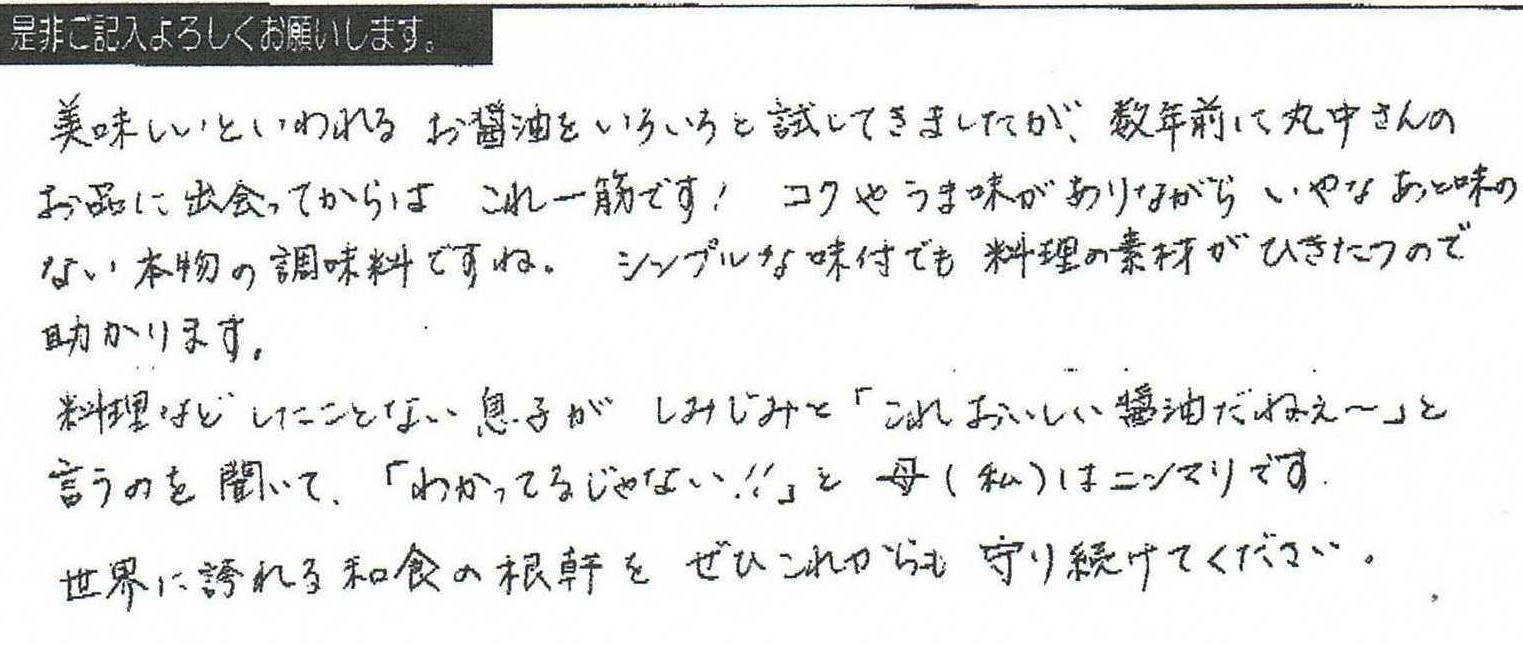 是非ご記入よろしくお願いします。
美味しいといわれる お醤油をいろいろと試してきましたが、数年前に丸中さんの
お品に出会ってからは これ一筋です! コクやうま味がありながら いやなあと味の
ない本物の調味料ですね。 シンプルな味付でも 料理の素材がひきたつので
助かります。
料理などしたことない息子が しみじみと「これおいしい醤油だねぇ〜」と
言うのを聞いて、「わかってるじゃない!!」と 母(私)はニンマリです.
世界に誇れる和食の根幹を ぜひこれからも 守り続けてください。